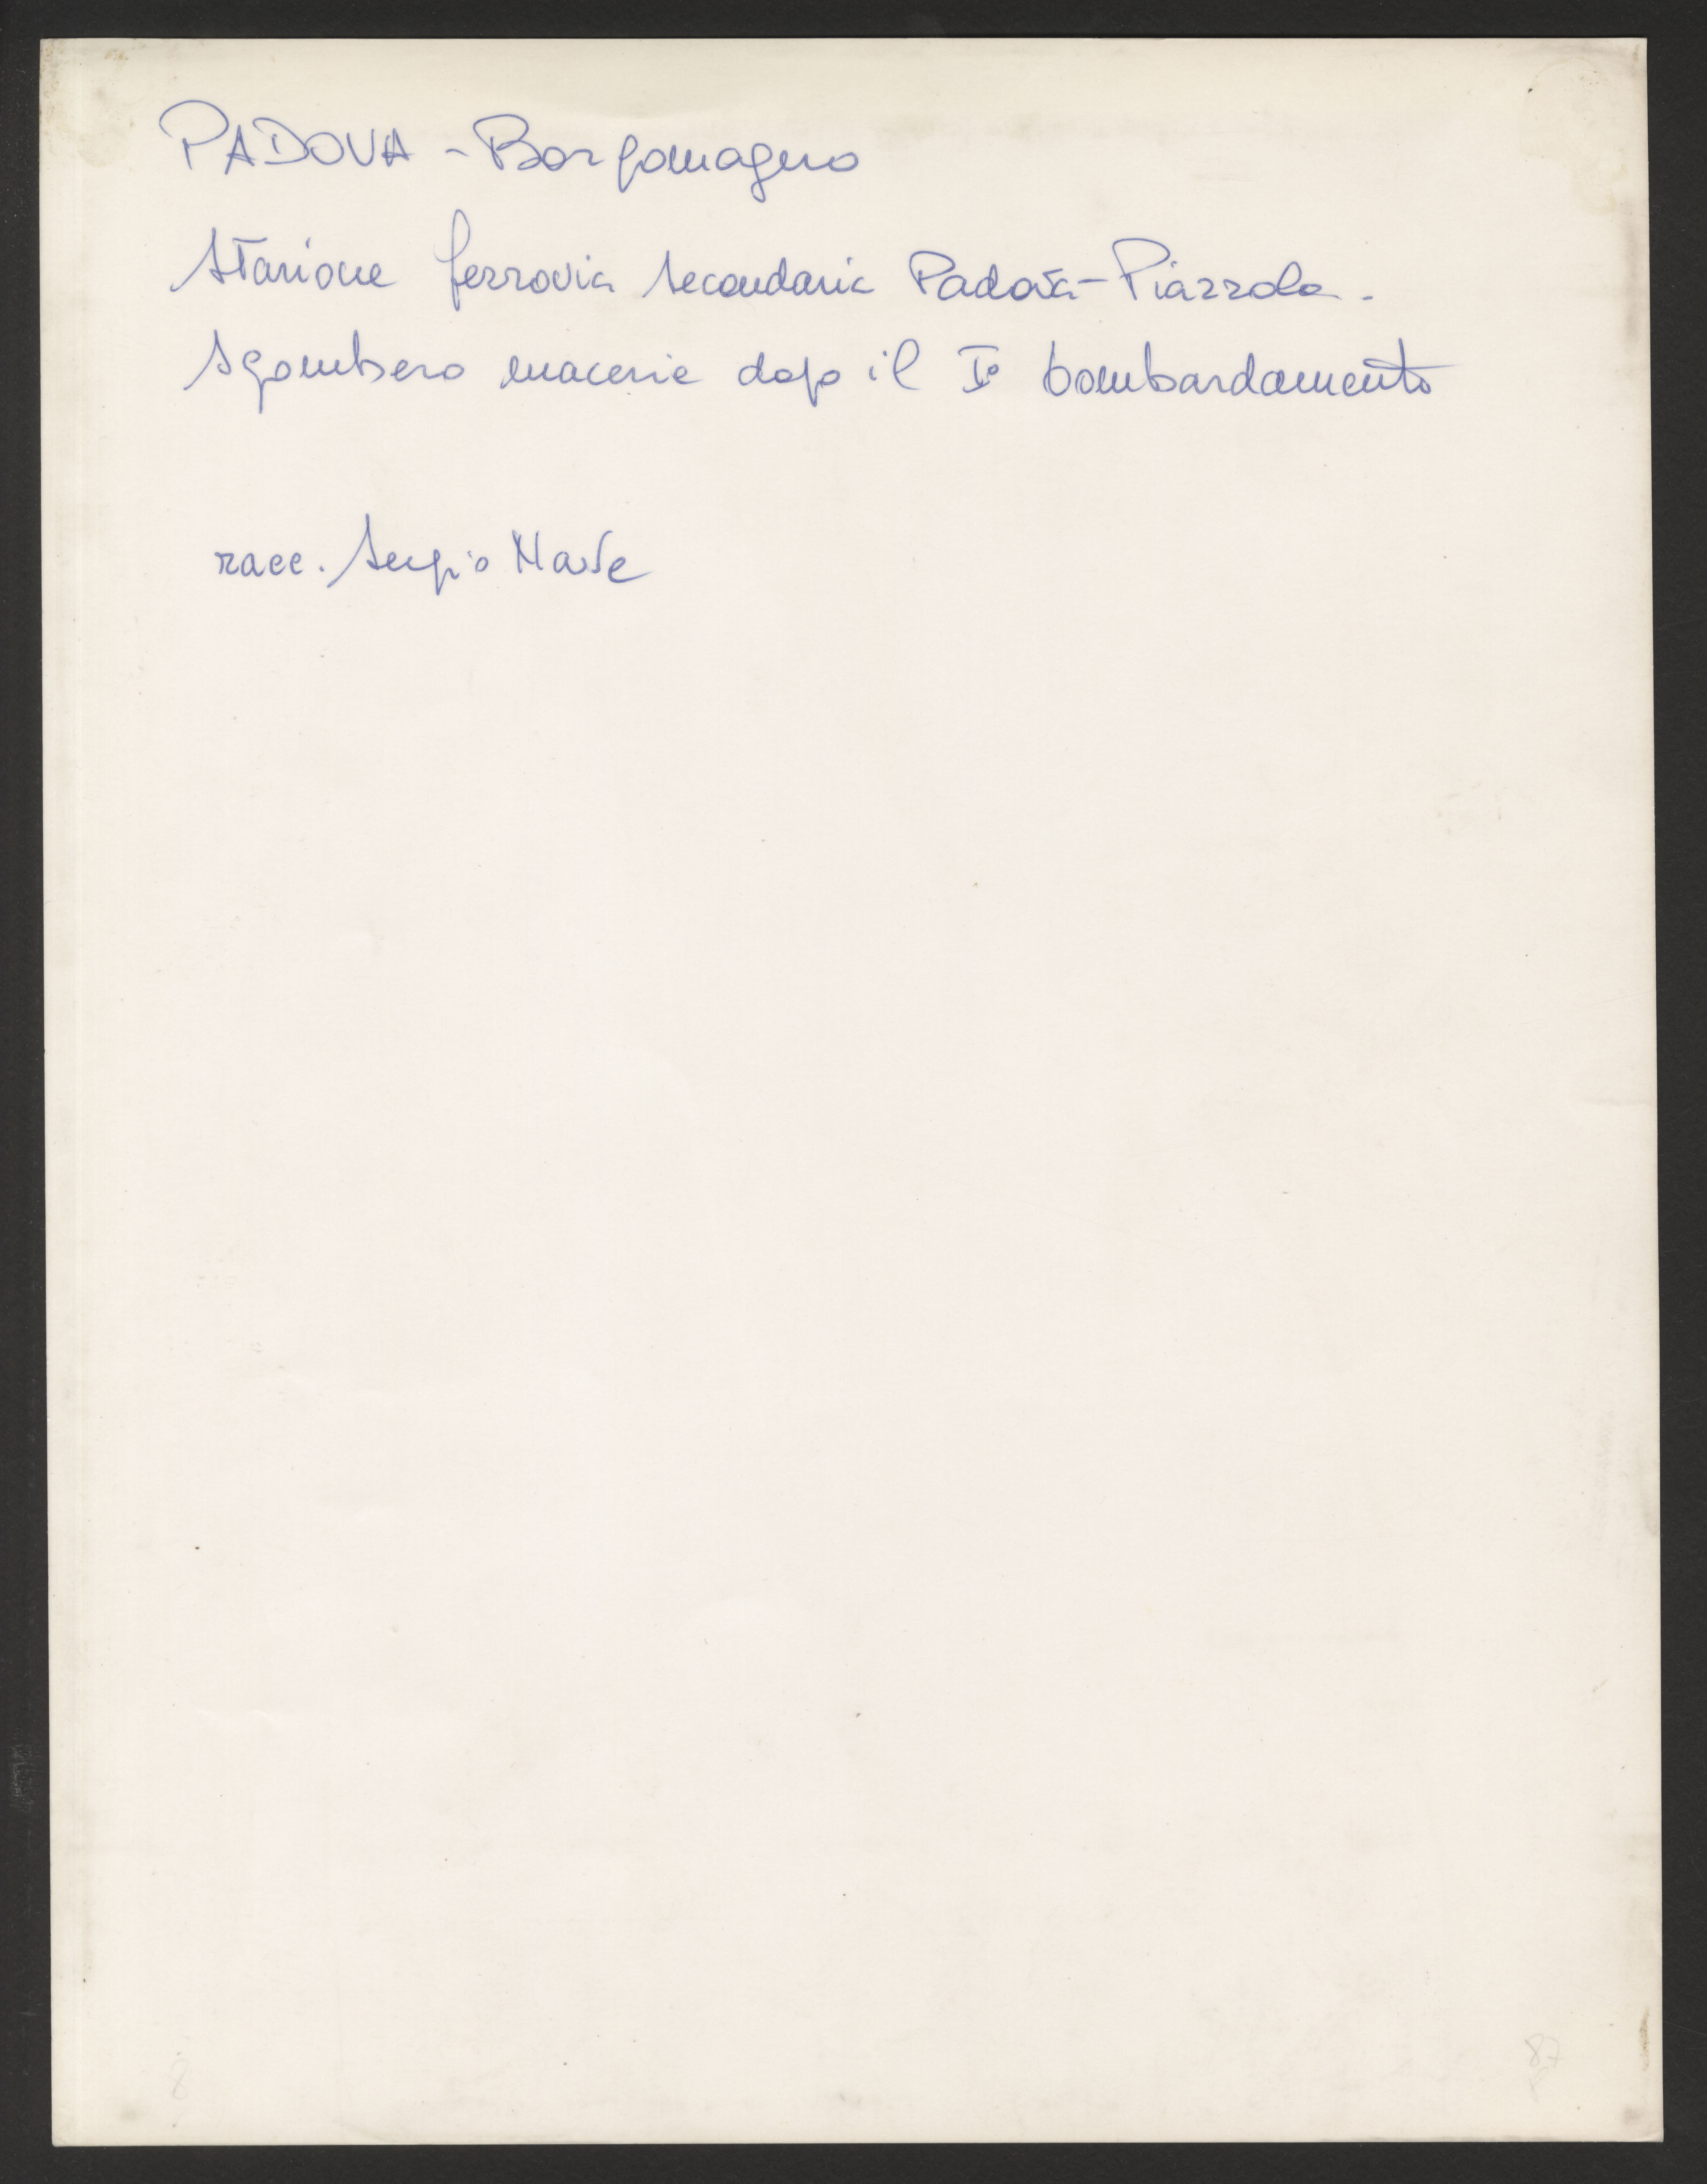 PADOVA - Borgomagno
Stazione ferrovia secondaria Padova-Piazzola.
Sgombero macerie dopo il Iº bombardamento
racc. Sergio Nave
8
87